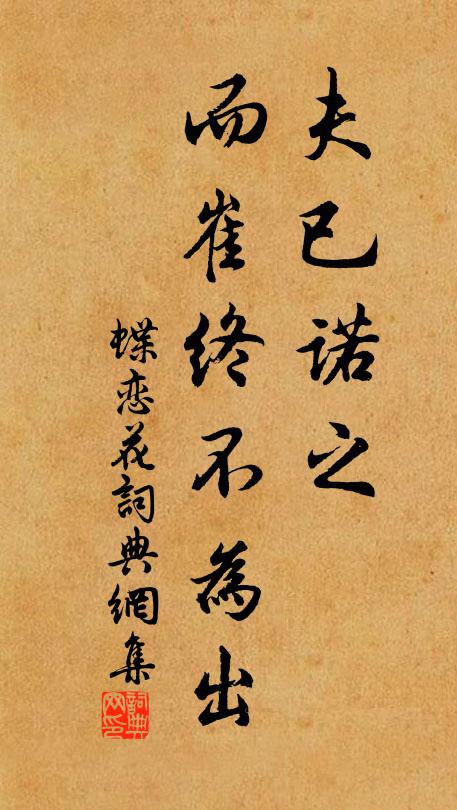 夫已诺之
而崔终不為出
蝶恋花詞典網集
詞典
网印